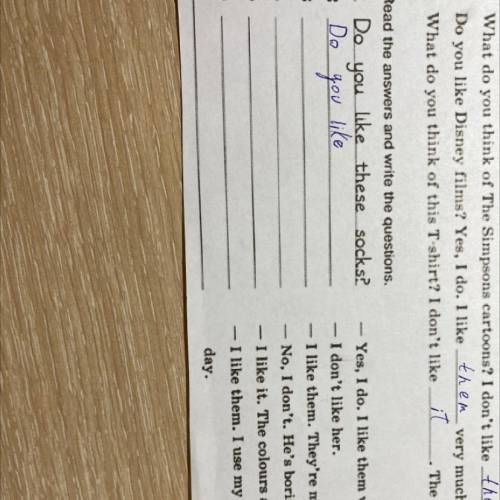 What do you think of The Simpsons cartoons? I don't like th
Do you like Disney films? Yes, I do. I like them very much
What do you think of this T-shirt? I don't like it . The
Read the answers and write the questions.
Do you like these socks? — Yes, I do. I like them
Do you like — I don't like her.
— I like them. They're
— No, I don't. He's bori
— I like it. The colours
— I like them. I use my
day.